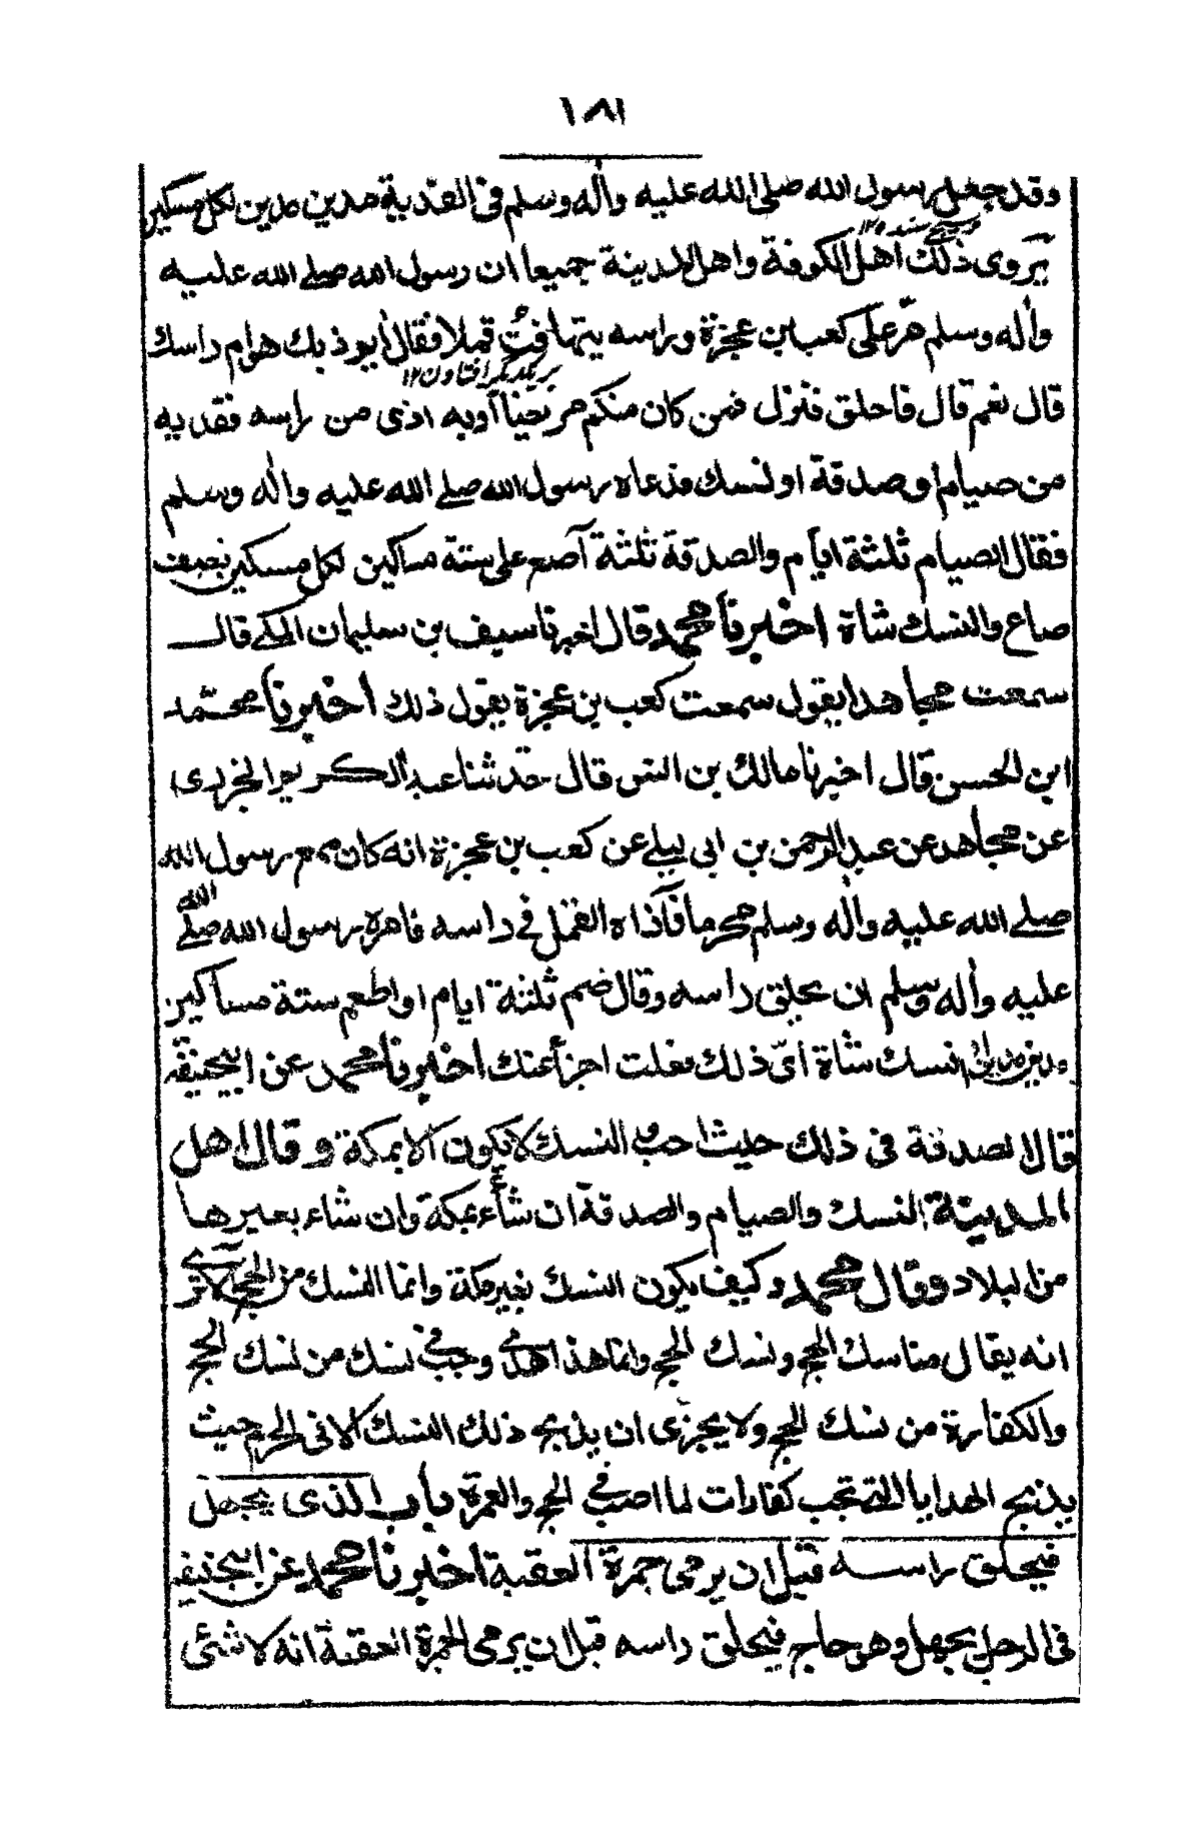 ١٨١
وقد جعل رسول الله صلى الله عليه وأله وسلم فى الفدية مدين مدين لكل مسكين
يروى ذلك اهل الكوفة واهل المدينة جميعا ان رسول الله صلے الله عليه
وأله وسلم مرّ على كعب بن عجزة وراسه يتهافت قملا فقال أيوذيك هوام راسك
قال نعم قال فاحلق فنزل فمن كان منكم مريضا أوبه اذى من راسه ففديه
من صيام او صدقة او نسك فدعاه رسول الله صلے الله عليه واله وسلم
فقال الصيام ثلثة ايام والصدقة ثلثة آصع على ستة مساكين لكل مسكين نصف
صاع والنسك شاة اخبرنا محمد قال اخبرنا سيف بن سليمان المكے قال
سمعت مجاهدا يقول سمعت كعب بن عجزة يقول ذلك اخبرنا محمّد
ابن الحسن قال اخبرنا مالك بن انس قال حدثنا عبد الكريم الجزرى
عن مجاهد عن عبد الرحمن بن ابى ليلے عن كعب بن عجزة انه كان مع رسول الله
صلے الله عليه وأله وسلم محرما فآذاه القمل فى راسه فامره رسول الله صلے الله
عليه وأله وسلم ان يحلق راسه وقال ضم ثلثة ايام او اطعم ستة مساكين
مدين مدين او انسك شاة اىّ ذلك فعلت اجزأ عنك اخبرنا محمد عن ابيحنيفة
قال الصدقة فى ذلك حيث احب والنسك لا يكون الا بمكة وقال اهل
المدينة النسك والصيام والصدقة ان شاء بمكة وان شاء بغيرها
من البلاد وقال محمد وكيف يكون النسك بغير مكة وانما النسك من الحج الا ترى
انه يقال مناسك الحج ونسك الحج وانما هذا هدى وجب فى نسك من نسك الحج
والكفارة من نسك الحج ولا يجزى ان يذبح ذلك النسك الا فى الحرم حيث
يذبح الهدايا التے تجب كفارات لما اصيب فى الحج والعمرة باب الذى يجهل
فيحلق راسه قبل ان يرمى جمرة العقبة اخبرنا محمد عن ابيحنيفة
فى الرجل يجهل وهو حاج فيحلق راسه قبل ان يرمى الجمرة العقبة انه لا شئى